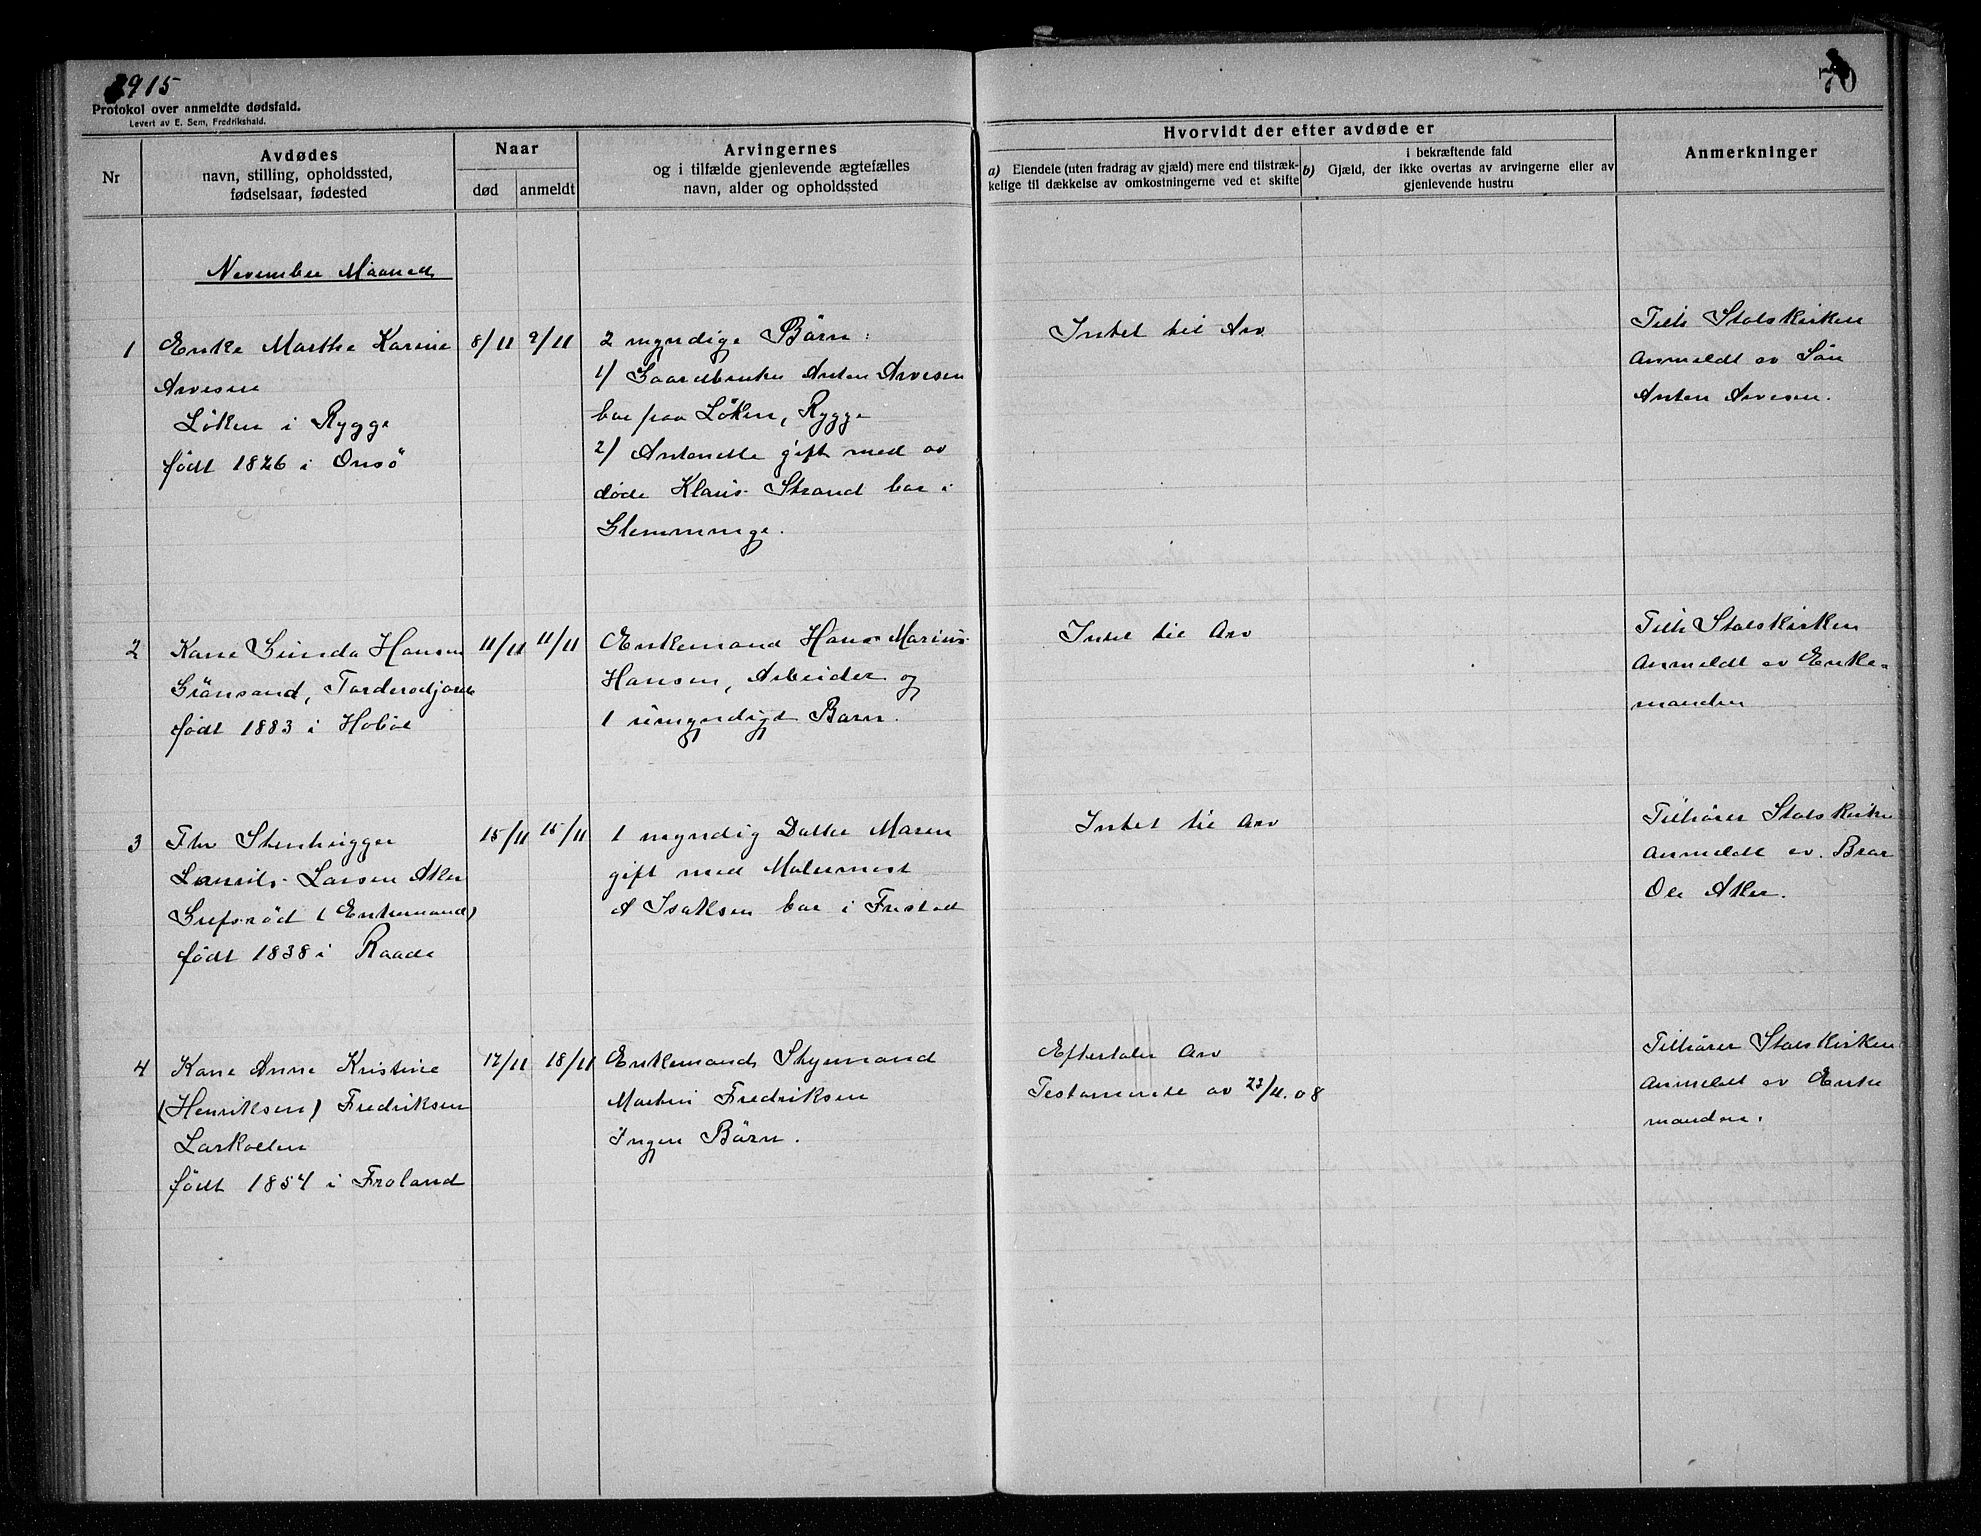 1915
70
Protokol over anmeldte dødsfald.
Levert av E. Sem, Fredrikshald.
Nr
Avdødes
navn, stilling, opholdssted,
fødselsaar, fødested
Naar
død
anmeldt
Arvingernes
og i tilfælde gjenlevende ægtefælles
navn, alder og opholdssted
Hvorvidt der efter avdøde er
a) Eiendele (uten fradrag av gjæld) mere end tilstræk-
kelige til dækkelse av omkostningerne ved et skifte
i bekræftende fald
b) Gjæld, der ikke overtas av arvingerne eller av
gjenlevende hustru
Anmerkninger
November Maaned
1
Enke Marthe Karine
Arvesen
Løken i Rygge
født 1826 i Onsö
8/11
9/11
2 myndige Börn:
1) Gaardbruker Anton Arvesen
bor paa Löken, Rygge
2) Antonette gift med av
döde Klaus Strand bor i
Glemminge.
Intet til Arv
Tilh Statskirken
Anmeldt av Sön
Anton Arvesen.
2
Kone Gunda Hansen
Grönsand,
født 1883 i Hoböl
11/11
11/11
Enkemand Hans Marius
Hansen, Arbeider og
1 umyndigt Barn.
Intet til Arv
Tilh Statskirken
Anmeldt av Enke-
manden
3
Fhv Stenhugger
Laurits Larsen Aker
Grefsröd (Enkemand)
født 1838 i Raade
15/11
15/11
1 myndig Datter Maren
gift med Malermest
A Isaksen bor i Fristad
Intet til Arv
Tilhörer Statskirke
Anmeldt av Bror
Ole Aker.
4
Kone Anne Kristine
(Henriksen) Fredriksen
Larkollen
født 1854 i Froland
17/11
18/11
Enkemand, Styrmand
Martin Fredriksen
Ingen Börn.
Efterlater Arv
Testamente av 23/4.08
Tilhörer Statskirken
Anmeldt av Enke
manden.